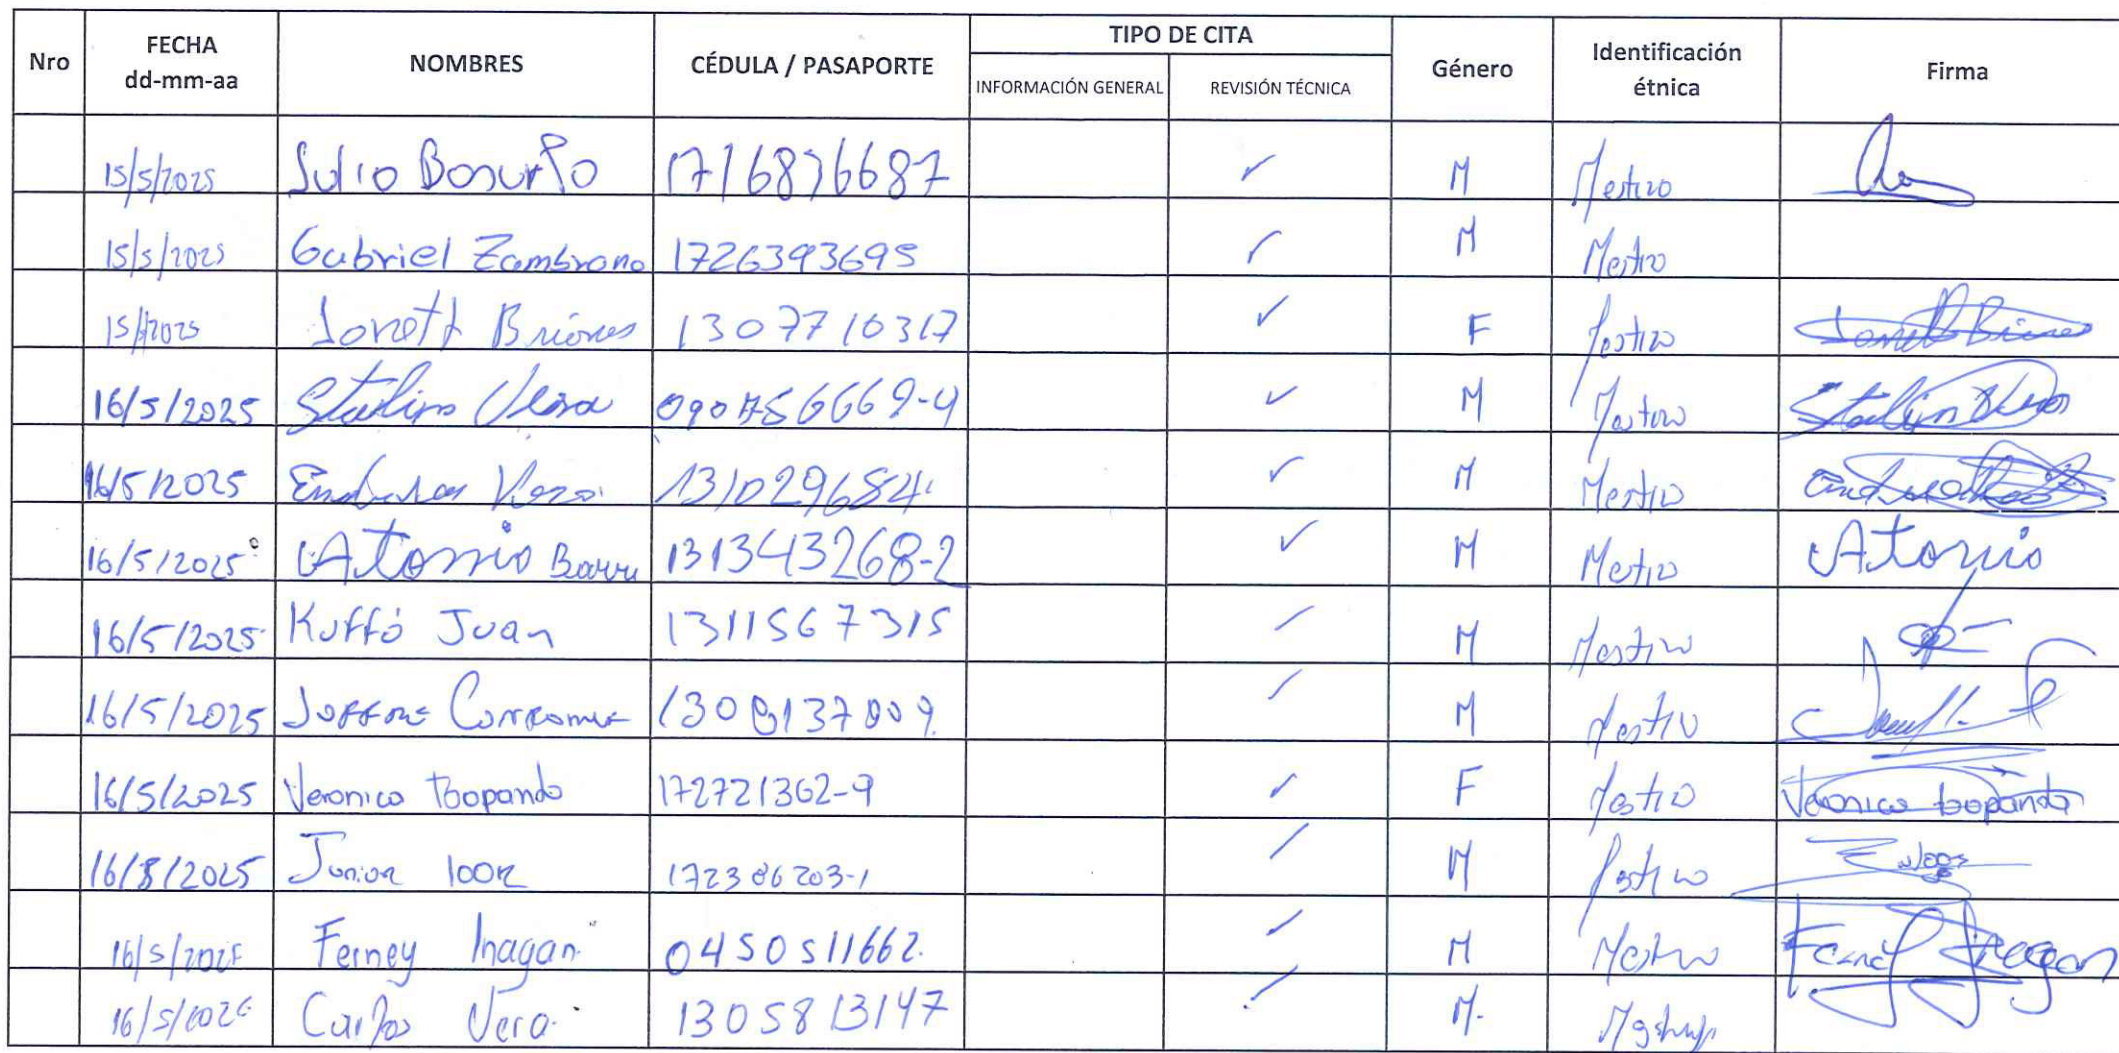 Nro FECHA dd-mm-aa NOMBRES CÉDULA / PASAPORTE TIPO DE CITA INFORMACIÓN GENERAL REVISIÓN TÉCNICA Género Identificación étnica Firma
15/5/2025 Julio 1716876687 ✓ M Mestizo
15/5/2025 Gabriel Zambrano 1726393695 ✓ M Mestizo
15/2025 Briones 1307710317 ✓ F Mestizo
16/5/2025 Stalin Vera ✓ M Mestizo Stalin Vera
16/5/2025 131029684 ✓ M Mestizo
16/5/2025 Atonio 131343268-2 ✓ M Mestizo Atonio
16/5/2025 Kuffó Juan 1311567315 ✓ M Mestizo
16/5/2025 ✓ M Mestizo
16/5/2025 Veronica toopanda 172721362-9 ✓ F Mestizo Veronica toopanda
16/5/2025 Junior loor 172386203-1 ✓ M Mestizo
16/5/2025 Ferney Inagan 0450511662. ✓ M Mestizo Ferney Inagan
16/5/2025 Carlos Vera. 1305813147 ✓ M.